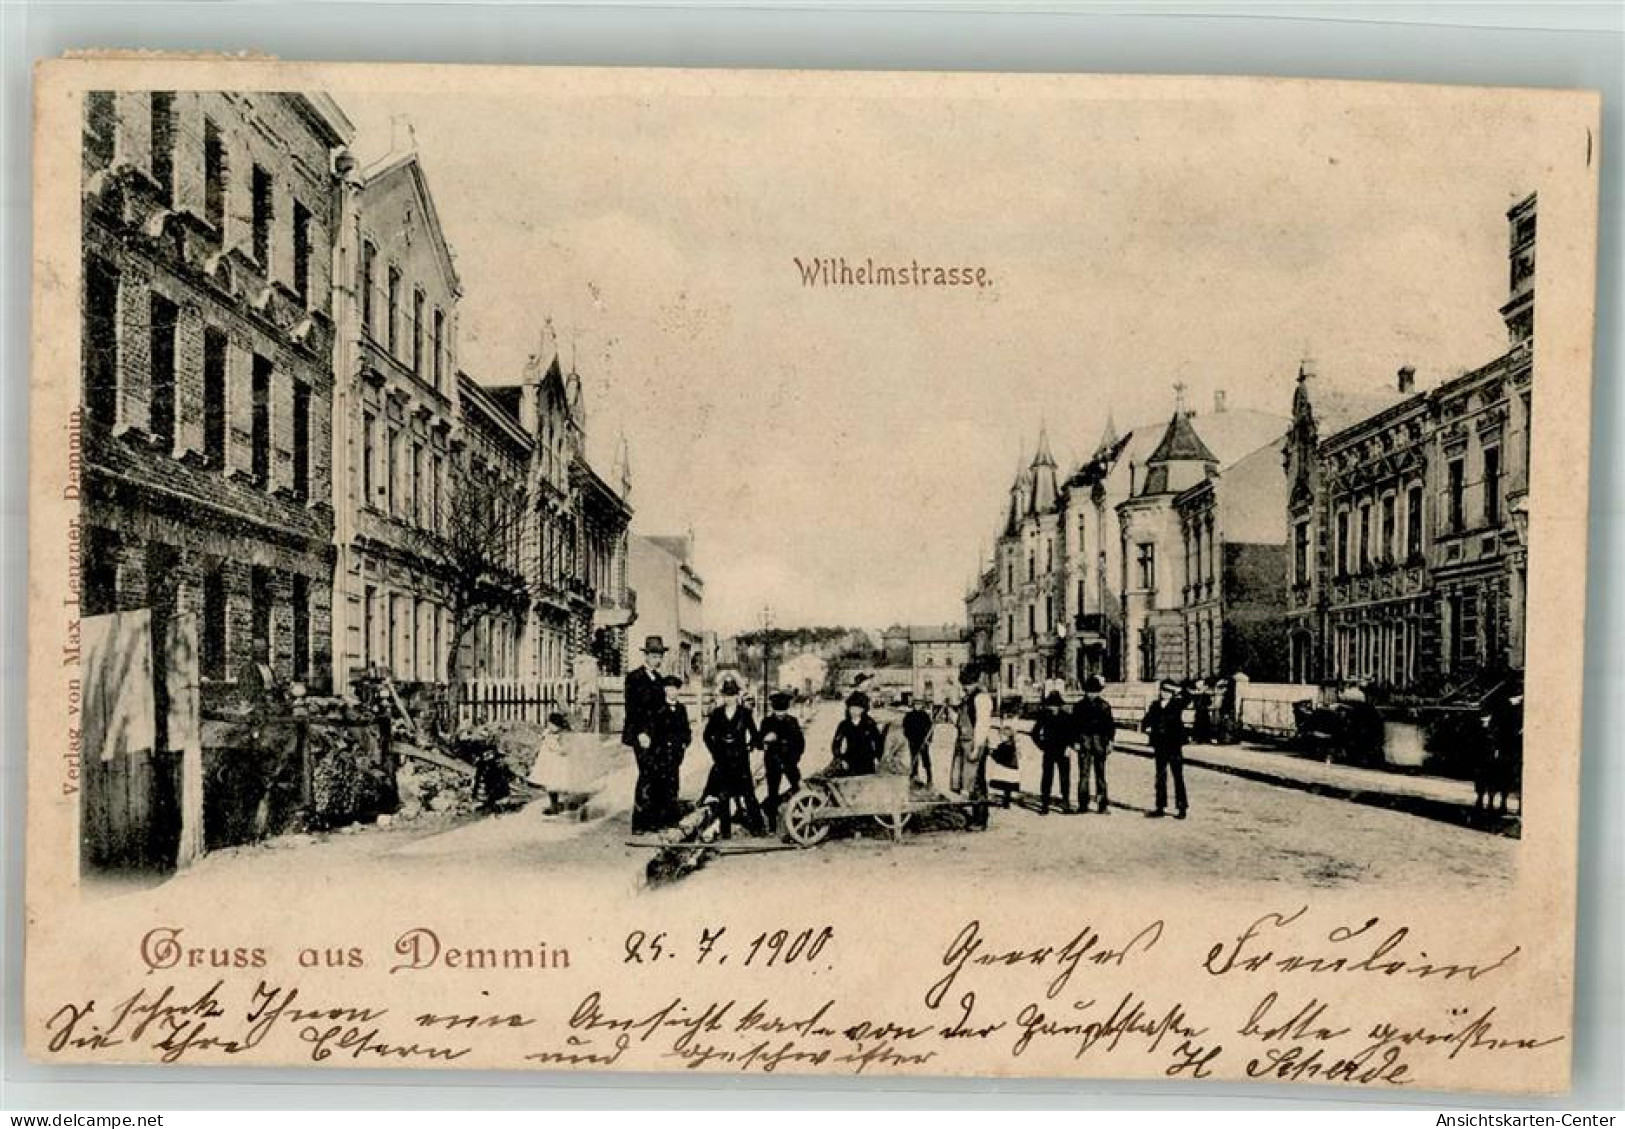 Wilhelmstrasse.
Verlag von Max Lenzner, Demmin.
Gruss aus Demmin 25. 7. 1900. Geerthes Freulein
schicke Ihnen eine Ansichtkarte von der Hauptstaße bitte grüßen
Sie Ihre Eltern und Geschwister H Scherde
Ansichtskarten-Center